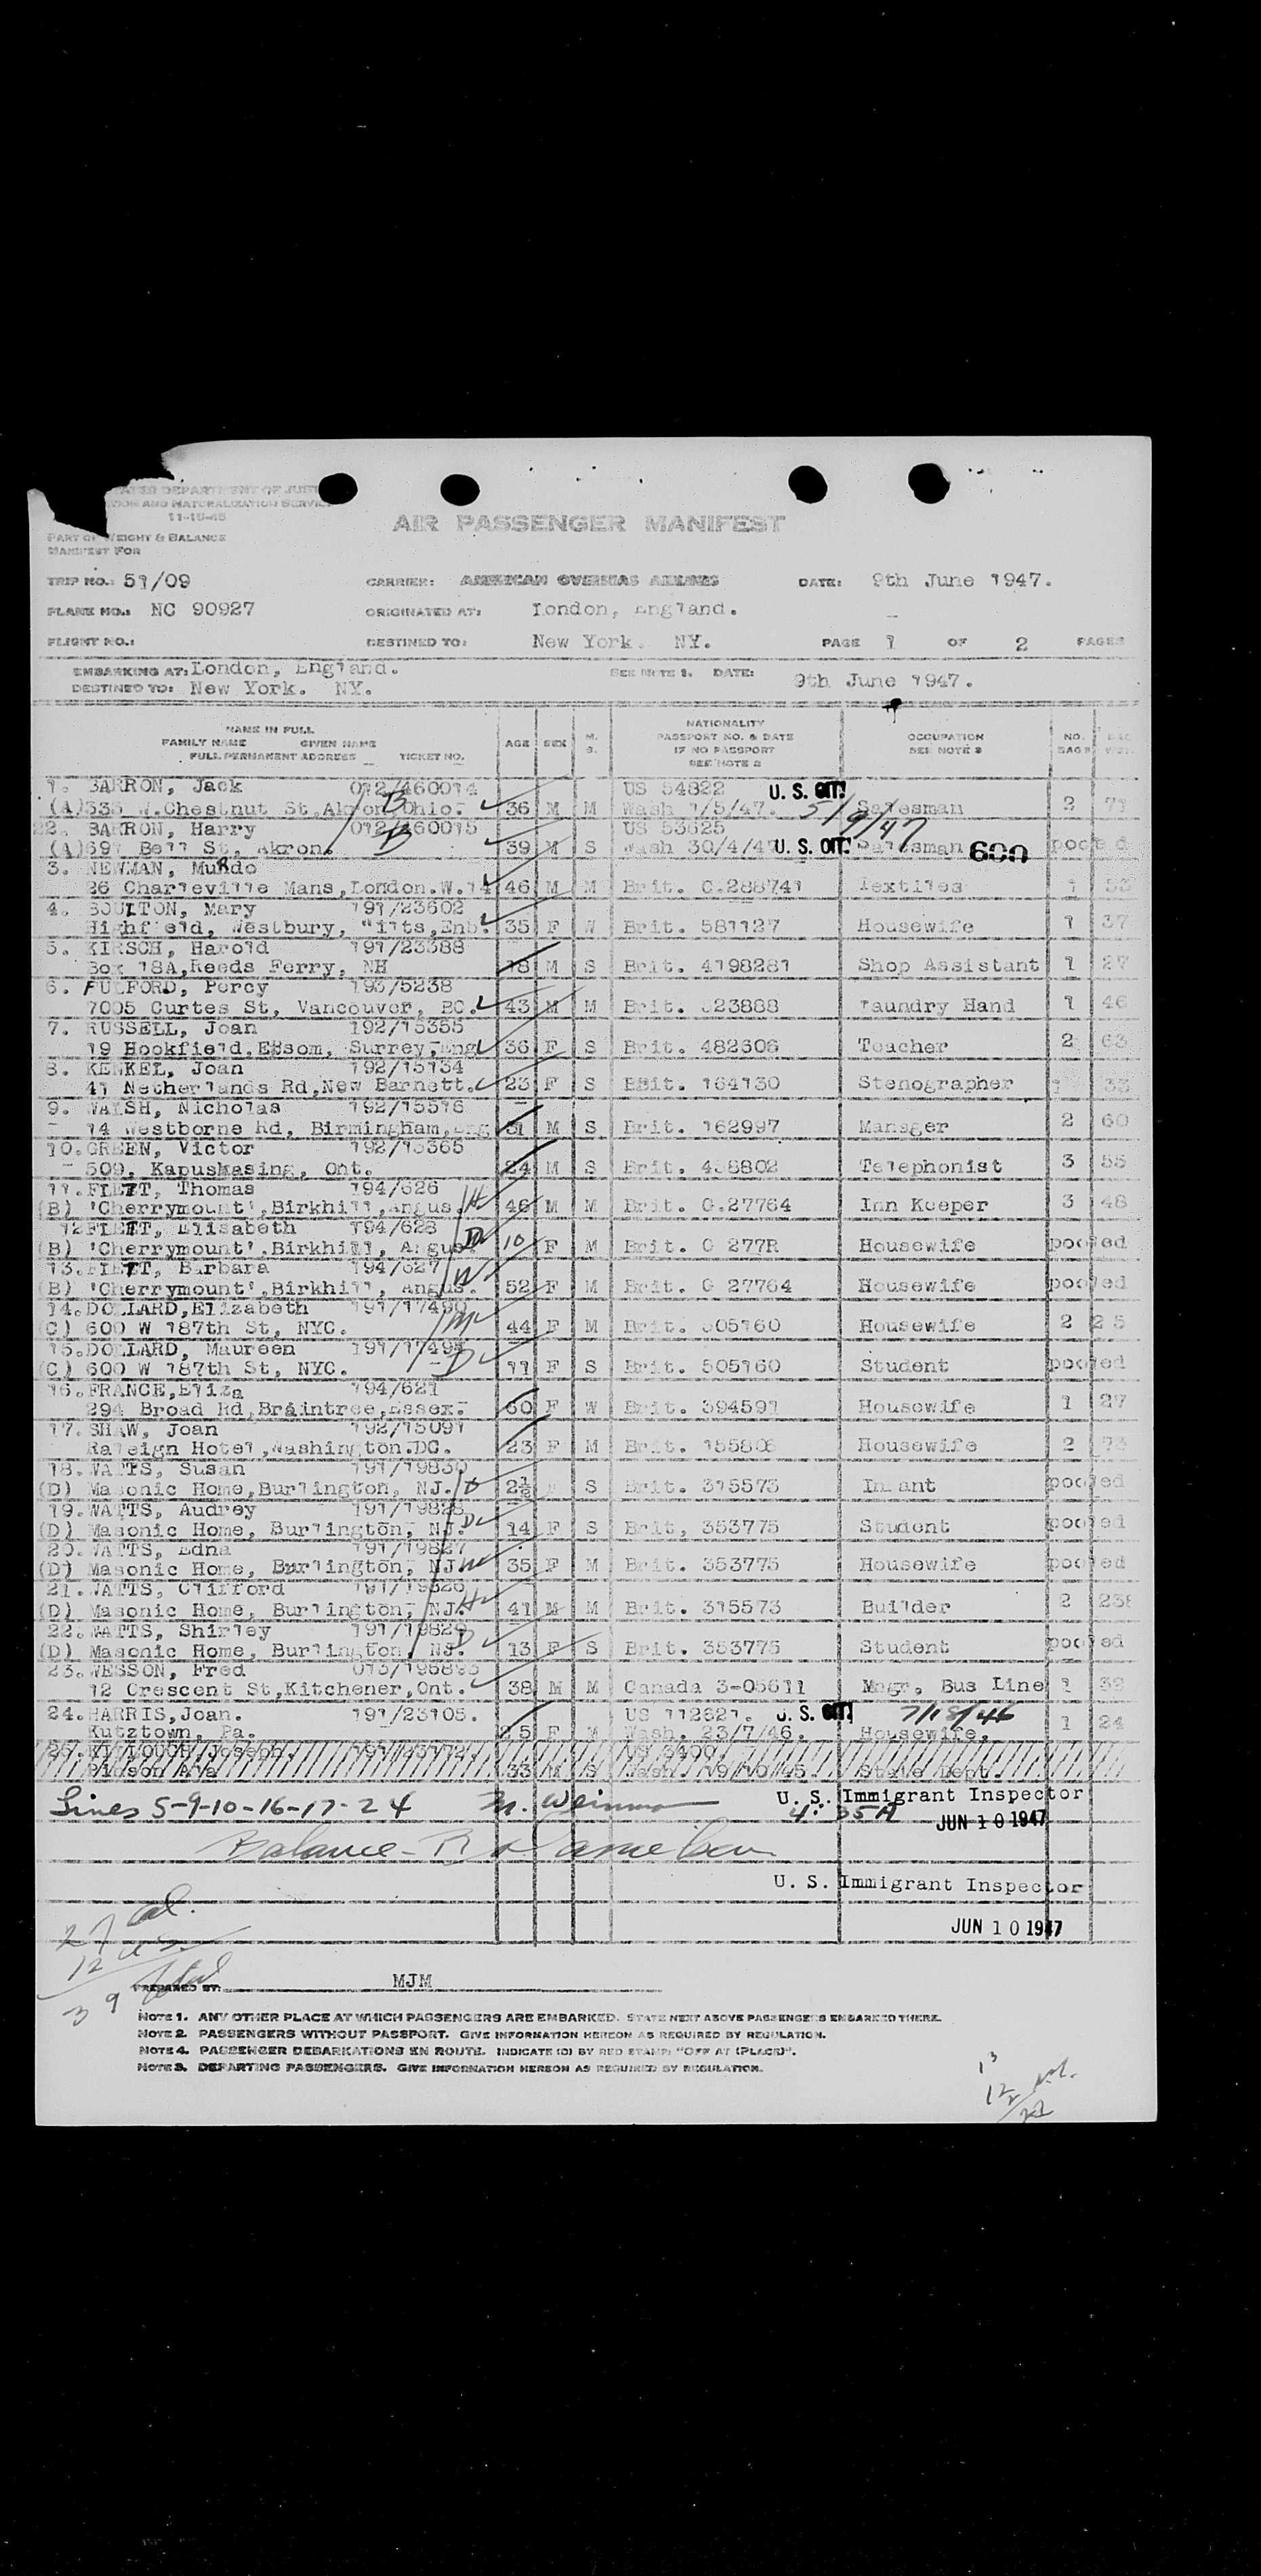 11-15-45
AIR PASSENGER MANIFEST
PART OF WEIGHT & BALANCE
MANIFEST FOR
TRIP NO.: 51/09 CARRIER: AMERICAN OVERSEAS AIRLINES DATE: 9th June 1947.
PLANE NO.: NC 90927 ORIGINATED AT: London, England.
FLIGHT NO.: DESTINED TO: New York. NY. PAGE 1 OF 2 PAGES
EMBARKING AT: London, England. SEE NOTE 1. DATE: 9th June 1947.
DESTINED TO: New York. NY.
NAME IN FULL
FAMILY NAME GIVEN NAME
FULL PERMANENT ADDRESS TICKET NO.
AGE SEX M. S.
NATIONALITY
PASSPORT NO. & DATE
IF NO PASSPORT
SEE NOTE 2
OCCUPATION
SEE NOTE 3
NO. BAGS
1. BARRON, Jack 012/460014 US 54822 U. S. CIT.
(A) 535 W.Chestnut St,Akron Ohio. 36 M M Wash 1/5/47. 5/9/47 Salesman 2 71
22. BARRON, Harry 012/460015 US 53625
(A) 691 Bell St. Akron. 39 M S Wash 30/4/47 U. S. CIT. Salesman 600 pooled
3. NEWMAN, Mundo
26 Charleville Mans,London.W.14 46 M M Brit. C.288741 Textiles 1
4. BOULTON, Mary 191/23602
Highfield, Westbury, "ilts,Enb. 35 F W Brit. 581127 Housewife 1 37
5. KIRSCH, Harold 191/23388
Box 18A,Reeds Ferry, NH 18 M S Brit. 4198281 Shop Assistant 1 27
6. FULFORD, Percy 193/5238
7005 Curtes St, Vancouver, BC. 43 M M Brit. 23888 Laundry Hand 1 46
7. RUSSELL, Joan 192/15355
19 Hookfield.Epsom, Surrey,Eng 36 F S Brit. 482606 Teacher 2 63
8. KENKEL, Joan 192/15134
41 Netherlands Rd,New Barnett. 23 F S BBit. 164130 Stenographer 1 33
9. WALSH, Nicholas 192/15516
14 Westborne Rd, Birmingham,Eng 31 M S Brit. 162997 Manager 2 60
10. GREEN, Victor 192/15365
509. Kapuskasing, Ont. 24 M S Brit. 438802 Telephonist 3 55
11. FLETT, Thomas 194/626
(B) 'Cherrymount',Birkhill,Angus. 46 M M Brit. G.27764 Inn Keeper 3 48
12 FLETT, Elisabeth 194/628
(B) 'Cherrymount'.Birkhill, Angus. 10 F M Brit. G 277R Housewife pooled
13. FLETT, Barbara 194/627
(B) 'Cherrymount',Birkhill, Angus. 52 F M Brit. G 27764 Housewife pooled
14. DOLLARD,Elizabeth 191/17490
(C) 600 W 187th St, NYC. 44 F M Brit. 505160 Housewife 2 25
15. DOLLARD, Maureen 191/17491
(C) 600 W 187th St, NYC. 11 F S Brit. 505160 Student pooled
16. FRANCE,Eliza 194/621
294 Broad Rd,Braintree,Essex. 60 F W Brit. 394591 Housewife 1 27
17. SHAW, Joan 192/15091
Raleign Hotel,Washington.DC. 23 F M Brit. 155806 Housewife 2 73
18. WATTS, Susan 191/19830
(D) Masonic Home,Burlington, NJ. 2½ F S Brit. 315573 Infant pooled
19. WATTS, Audrey 191/19828
(D) Masonic Home, Burlington, NJ. 14 F S Brit, 353775 Student pooled
20. WATTS, Edna 191/19827
(D) Masonic Home, Burlington, NJ. 35 F M Brit. 353775 Housewife pooled
21. WATTS, Clifford 191/19826
(D) Masonic Home, Burlington, NJ. 41 M M Brit. 315573 Builder 2 238
22. WATTS, Shirley 191/19829
(D) Masonic Home, Burlington, NJ. 13 F S Brit. 353775 Student pooled
23. WESSON, Fred 013/195893
12 Crescent St,Kitchener,Ont. 38 M M Canada 3-05611 Mngr, Bus Line 1 39
24. HARRIS,Joan. 191/23105. US 112621. U. S. CIT. 7/18/46
Kutztown, Pa. 25 F M Wash. 23/7/46. Housewife. 1 24
25. KILLOUGH,Joseph. 191/23172. US 3400.
33 M S Wash. 19/10/45. State Dept.
Lines 5-9-10-16-17-24 M. Weinman U. S. Immigrant Inspector
4:35A JUN 10 1947
Balance -
U. S. Immigrant Inspector
JUN 10 1947
27 cal.
12 U.S.
39 Total
PREPARED BY: MJM
NOTE 1. ANY OTHER PLACE AT WHICH PASSENGERS ARE EMBARKED. STATE NEXT ABOVE PASSENGERS EMBARKED THERE.
NOTE 2. PASSENGERS WITHOUT PASSPORT. GIVE INFORMATION HEREON AS REQUIRED BY REGULATION.
NOTE 4. PASSENGER DEBARKATIONS EN ROUTE. INDICATE (D) BY RED STAMP: "OFF AT (PLACE)".
NOTE 3. DEPARTING PASSENGERS. GIVE INFORMATION HEREON AS REQUIRED BY REGULATION.
13
12